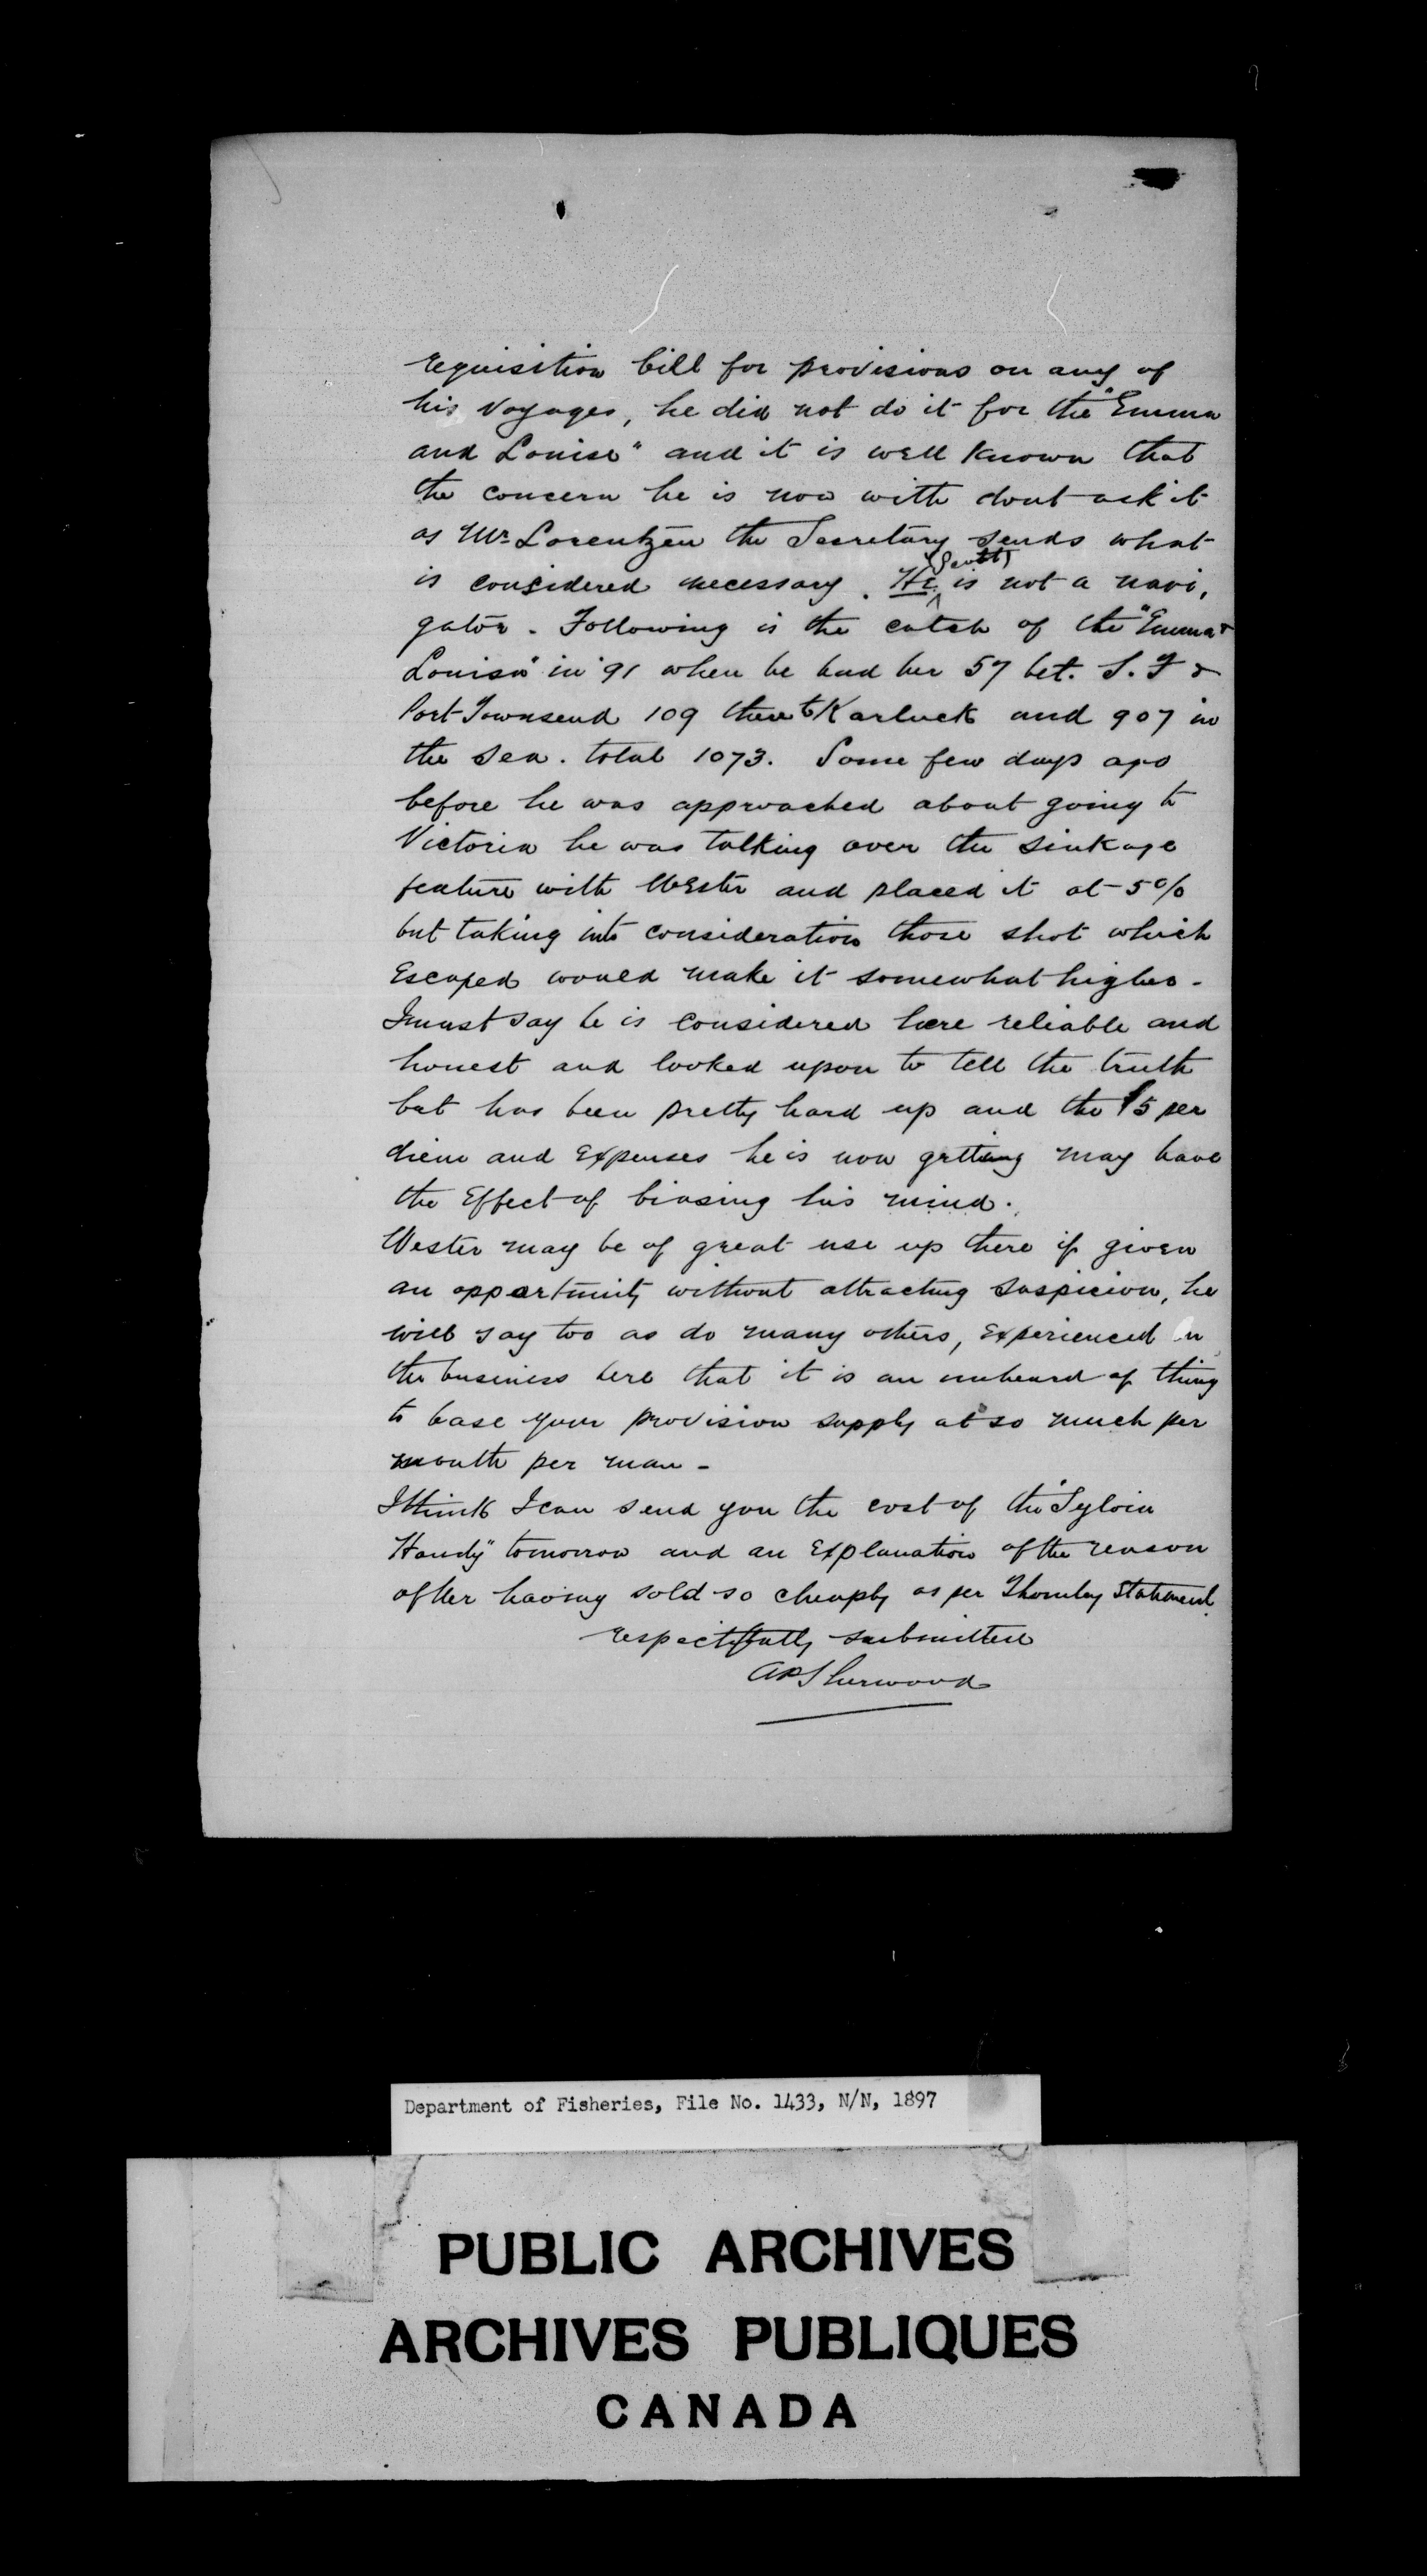 requisition bill for provisions on any of
his voyages, he did not do it for the "Emma
and Louise" and it is well known that
the concern he is now with dont ask it
as Mr. Lorentzen the Secretary sends what
is considered necessary. He (Scott) is not a navi,
gator. Following is the catch of the "Emma &
Louisa" in '91 when he had her 57 bet. S.F &
Port Townsend 109 then to Karluck and 907 in
the sea. total 1073. Some few days ago
before he was approached about going to
Victoria he was talking over the sinkage
feature with Wester and placed it at 5%
but taking into consideration those shot which
Escaped would make it somewhat higher.
I must say he is considered here reliable and
honest and looked upon to tell the truth
but has been pretty hard up and the $5 per
diem and Expenses he is now getting may have
the Effect of biasing his mind.
Wester may be of great use up there if given
an opportunity without attracting suspicion, he
will say too as do many others, Experienced in
the business here that it is an unheard of thing
to base your provision supply at so much per
month per man -
I think I can send you the cost of the "Sylvia
Handy" tomorrow and an Explanation of the reason
of her having sold so cheaply as per Thornley Statement.
respectfully submitted
AP Sherwood
Department of Fisheries, File No. 1433, N/N, 1897
PUBLIC ARCHIVES
ARCHIVES PUBLIQUES
CANADA